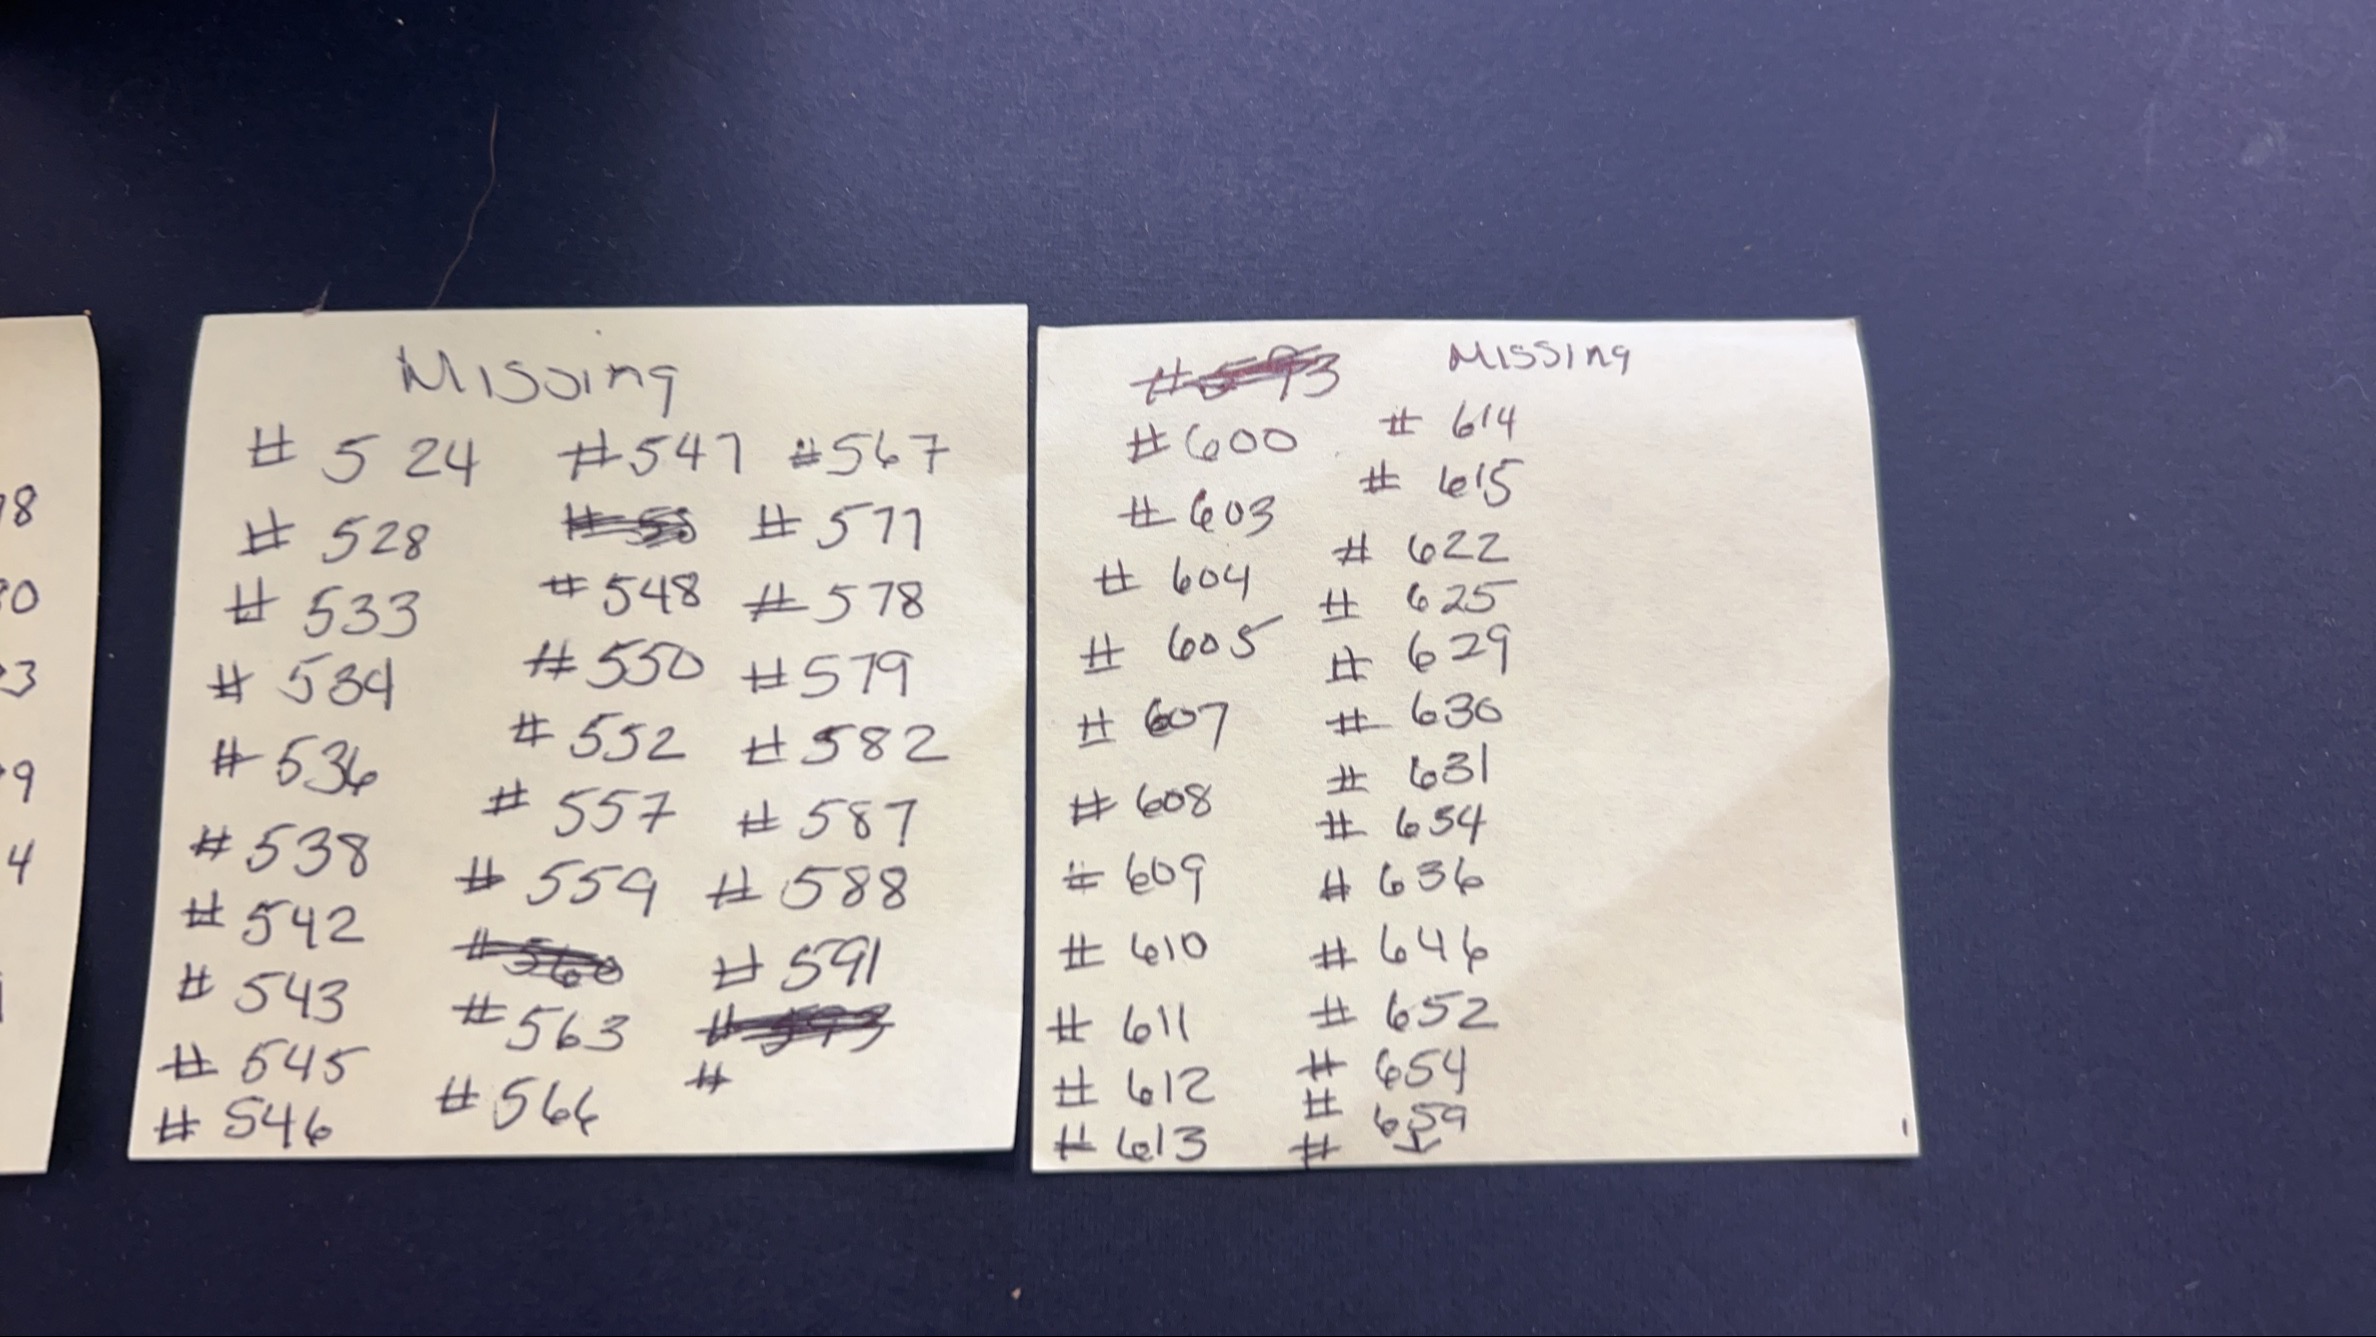 8
0
3
9
4
Missing
# 524 #547 #567
# 528 #577
# 533 #548 #578
# 534 #550 #579
# 536 #552 #582
# 538 # 557 #587
# 542 # 559 # 588
# 543 #560 # 591
# 545 # 563 # 593
# 546 # 566 #
#593 Missing
#600 # 614
# 603 # 615
# 604 # 622
# 605 # 625
# 607 # 629
# 608 # 630
# 609 # 631
# 610 # 654
# 611 # 636
# 612 # 646
# 613 # 652
# 654
# 659
#